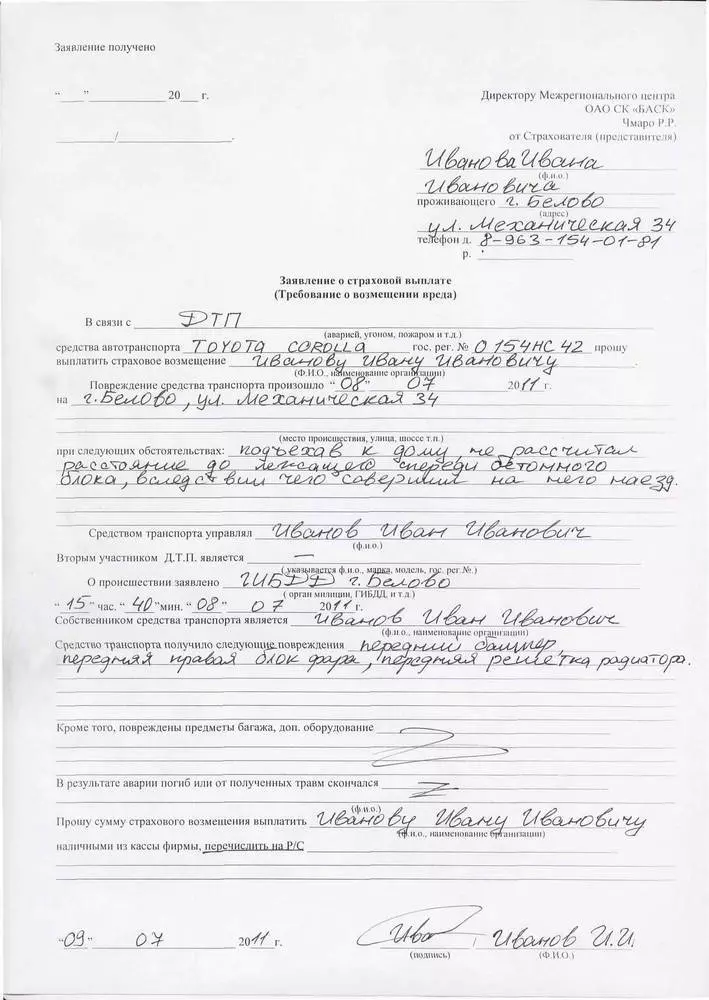 Заявление получено
"___"____________ 20___ г.
Директору Межрегионального центра
ОАО СК «БАСК»
Чмаро Р.Р.
____________/____________________.
от Страхователя (представителя)
Иванова Ивана
(ф.и.о.)
Ивановича
проживающего г. Белово
(адрес)
ул. Механическая 34
телефон д. 8-963-154-01-81
р.
Заявление о страховой выплате
(Требование о возмещении вреда)
В связи с ДТП
(аварией, угоном, пожаром и т.д.)
средства автотранспорта TOYOTA COROLLA гос. рег. № О 154 НС 42 прошу
выплатить страховое возмещение Иванову Ивану Ивановичу
(Ф.И.О., наименование организации)
Повреждение средства транспорта произошло "08" 07 2011 г.
на г. Белово, ул. Механическая 34
(место происшествия, улица, шоссе т.п.)
при следующих обстоятельствах: подъехав к дому, не рассчитал
расстояние до лежащего спереди бетонного
блока, вследствии чего совершил на него наезд.
Средством транспорта управлял Иванов Иван Иванович
(ф.и.о.)
Вторым участником Д.Т.П. является —
( указывается ф.и.о., марка, модель, гос. рег.№.)
О происшествии заявлено ГИБДД г. Белово
( орган милиции, ГИБДД, и т.д.)
"15" час. "40" мин. "08" 07 2011 г.
Собственником средства транспорта является Иванов Иван Иванович
(ф.и.о., наименование организации)
Средство транспорта получило следующие повреждения передний бампер,
передняя правая блок фара, передняя решетка радиатора.
Кроме того, повреждены предметы багажа, доп. оборудование
В результате аварии погиб или от полученных травм скончался
(ф.и.о.)
Прошу сумму страхового возмещения выплатить Иванову Ивану Ивановичу
(ф.и.о., наименование организации)
наличными из кассы фирмы, перечислить на Р/С
"09" 07 2011 г. Ива / Иванов И.И.
(подпись) (Ф.И.О.)